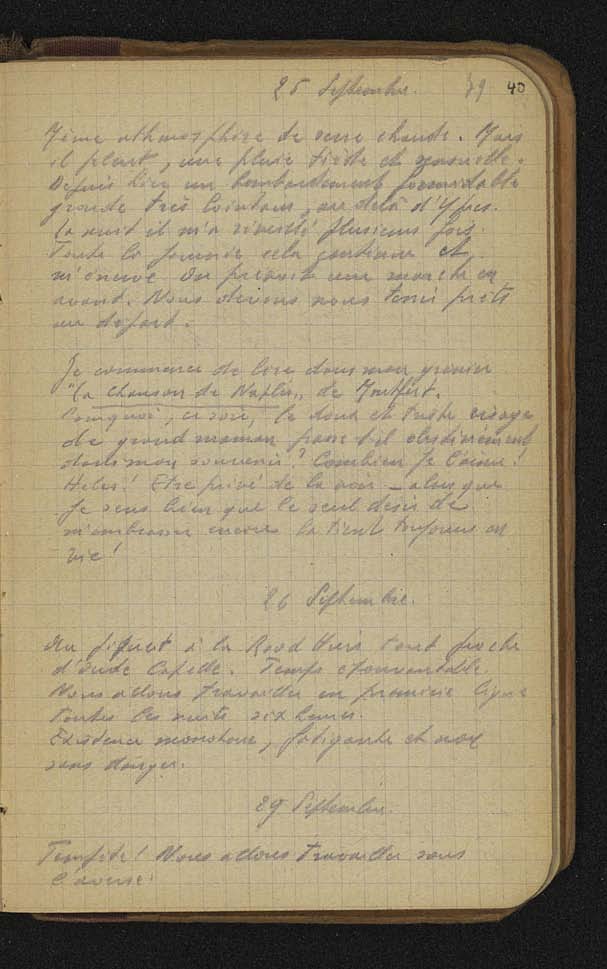 25 Septembre. 39 40
Même athmosphère de serre chaude. Mais
il pleut, une pluie tiède et
Depuis hier un bombardement formidable
gronde très lointain, au delà d'Ypres.
La nuit il m'a réveillé plusieurs fois.
Toute la journée cela continue et
m'énerve. On prévoit une marche en
avant. Nous devons nous tenir prêts
au départ.
Je commence de lire dans mon grenier
"La Chanson de Naples" de Montfort.
Pourquoi, ce soir, le doux et triste visage
de grand maman passe-t-il obstinément
dans mon souvenir? Combien je l'aime!
Helas! Etre privé de la voir - alors que
je sens bien que le seul désir de
m'embrasser encore la tient toujours en
vie!
26 Septembre.
Au piquet à la Rood Huis tout proche
d'Oude Capelle. Temps épouvantable.
Nous allons travailler en première ligne
toutes les nuits six heures.
Existence monotone, fatigante et non
sans danger.
29 Septembre.
Tempête! Nous allons travailler sous
l'averse!